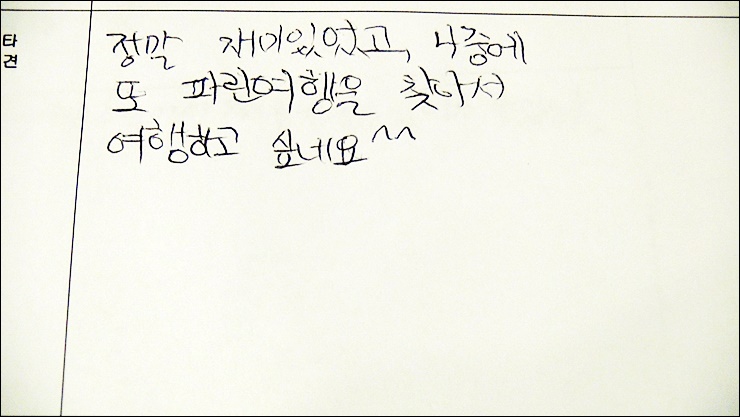 타
견
정말 재미있었고, 나중에
또 파란여행을 찾아서
여행하고 싶네요^^